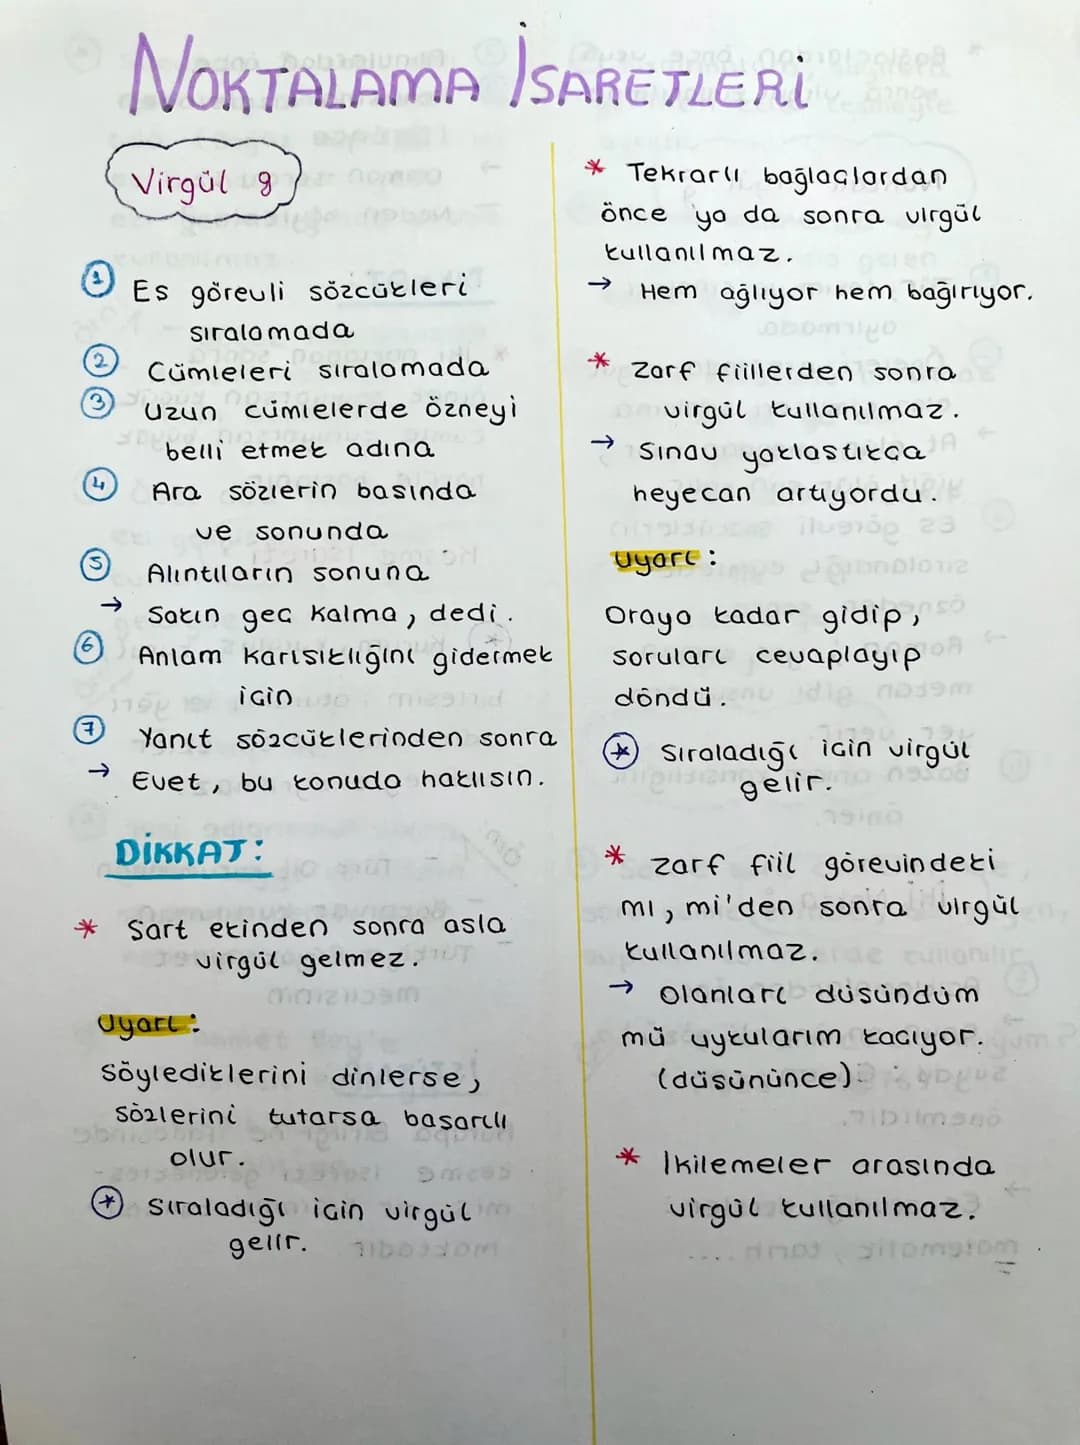 NOKTALAMA İSARETLERİ
Virgül g
1 Es görevli sözcükleri
sıralamada
2 Cümleleri sıralamada
3 Uzun cümlelerde özneyi
belli etmek adına
4 Ara sözlerin basında
ve sonunda
5 Alıntıların sonuna
→ Sakın gec kalma, dedi.
6 Anlam karısıklığını gidermek
icin
7 Yanıt sözcüklerinden sonra
→ Evet, bu konuda haklısın.
DİKKAT:
* Sart ekinden sonra asla
virgül gelmez.
Uyarı:
Söylediklerini dinlerse,
sözlerini tutarsa basarılı
olur.
* Sıraladığı icin virgül
gelir.
* Tekrarlı bağlaclardan
önce ya da sonra virgül
kullanılmaz.
→ Hem ağlıyor hem bağırıyor.
* Zarf fiillerden sonra
virgül kullanılmaz.
→ Sınav yaklastıkca
heyecan artıyordu.
Uyarı:
Oraya kadar gidip,
soruları cevaplayıp
döndü.
* Sıraladığı icin virgül
gelir.
* Zarf fiil görevindeki
mı, mi'den sonra virgül
kullanılmaz.
→ Olanları düsündüm
mü uykularım kacıyor.
(düsününce)
* İkilemeler arasında
virgül kullanılmaz.